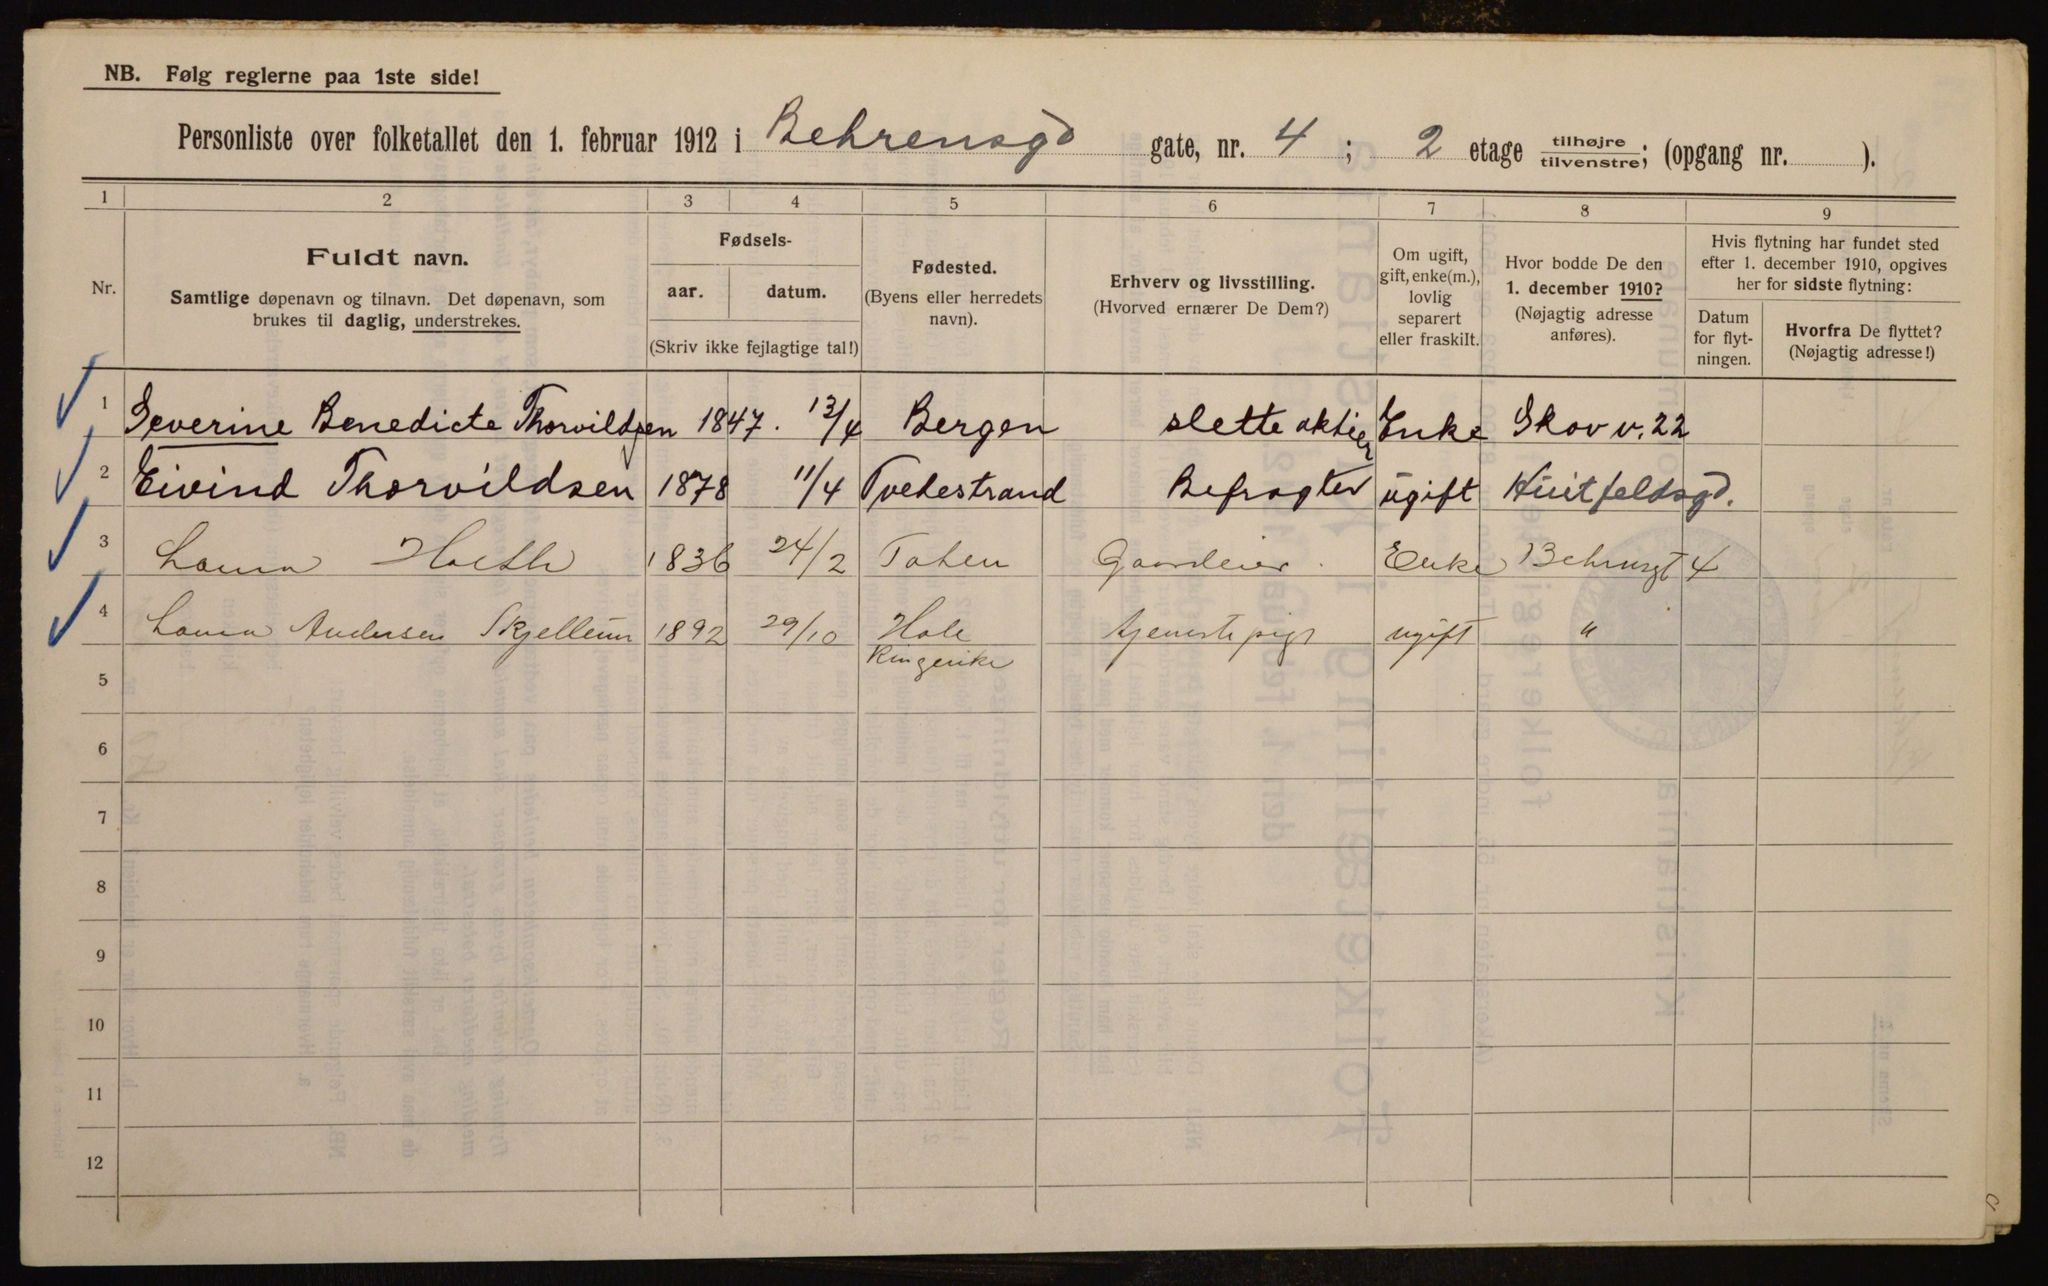 NB. Følg reglerne paa 1ste side!
Personliste over folketallet den 1. februar 1912 i Behrensgd gate, nr. 4 ; 2 etage tilhøjre/tilvenstre; (opgang nr. ).
1 2 3 4 5 6 7 8 9
Nr.
Fuldt navn.
Samtlige døpenavn og tilnavn. Det døpenavn, som
brukes til daglig, understrekes.
Fødsels-
aar. datum.
(Skriv ikke fejlagtige tal!)
Fødested.
(Byens eller herredets
navn).
Erhverv og livsstilling.
(Hvorved ernærer De Dem?)
Om ugift,
gift, enke(m.),
lovlig
separert
eller fraskilt.
Hvor bodde De den
1. december 1910?
(Nøjagtig adresse
anføres).
Hvis flytning har fundet sted
efter 1. december 1910, opgives
her for sidste flytning:
Datum
for flyt-
ningen.
Hvorfra De flyttet?
(Nøjagtig adresse!)
1 Severine Benedicte Thorvildsen 1847. 13/4 Bergen slette aktier Enke Skov v. 22
2 Eivind Thorvildsen 1878 11/4 Tvedestrand Befragter ugift Huitfeldsgd.
3 1836 24/2 Enke 4
4 Andersen 1892 29/10 Hole tjenestepige ugift "
Ringerike
5
6
7
8
9
10
11
12